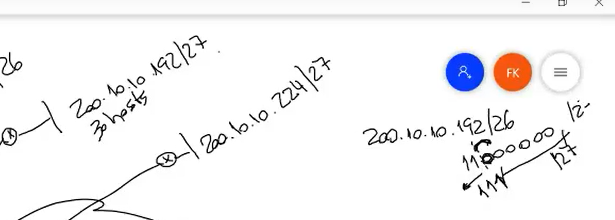 /26
200.10.10.192/27
30 hosts
200.10.10.224/27
FK
200.10.10.192/26
/27
111